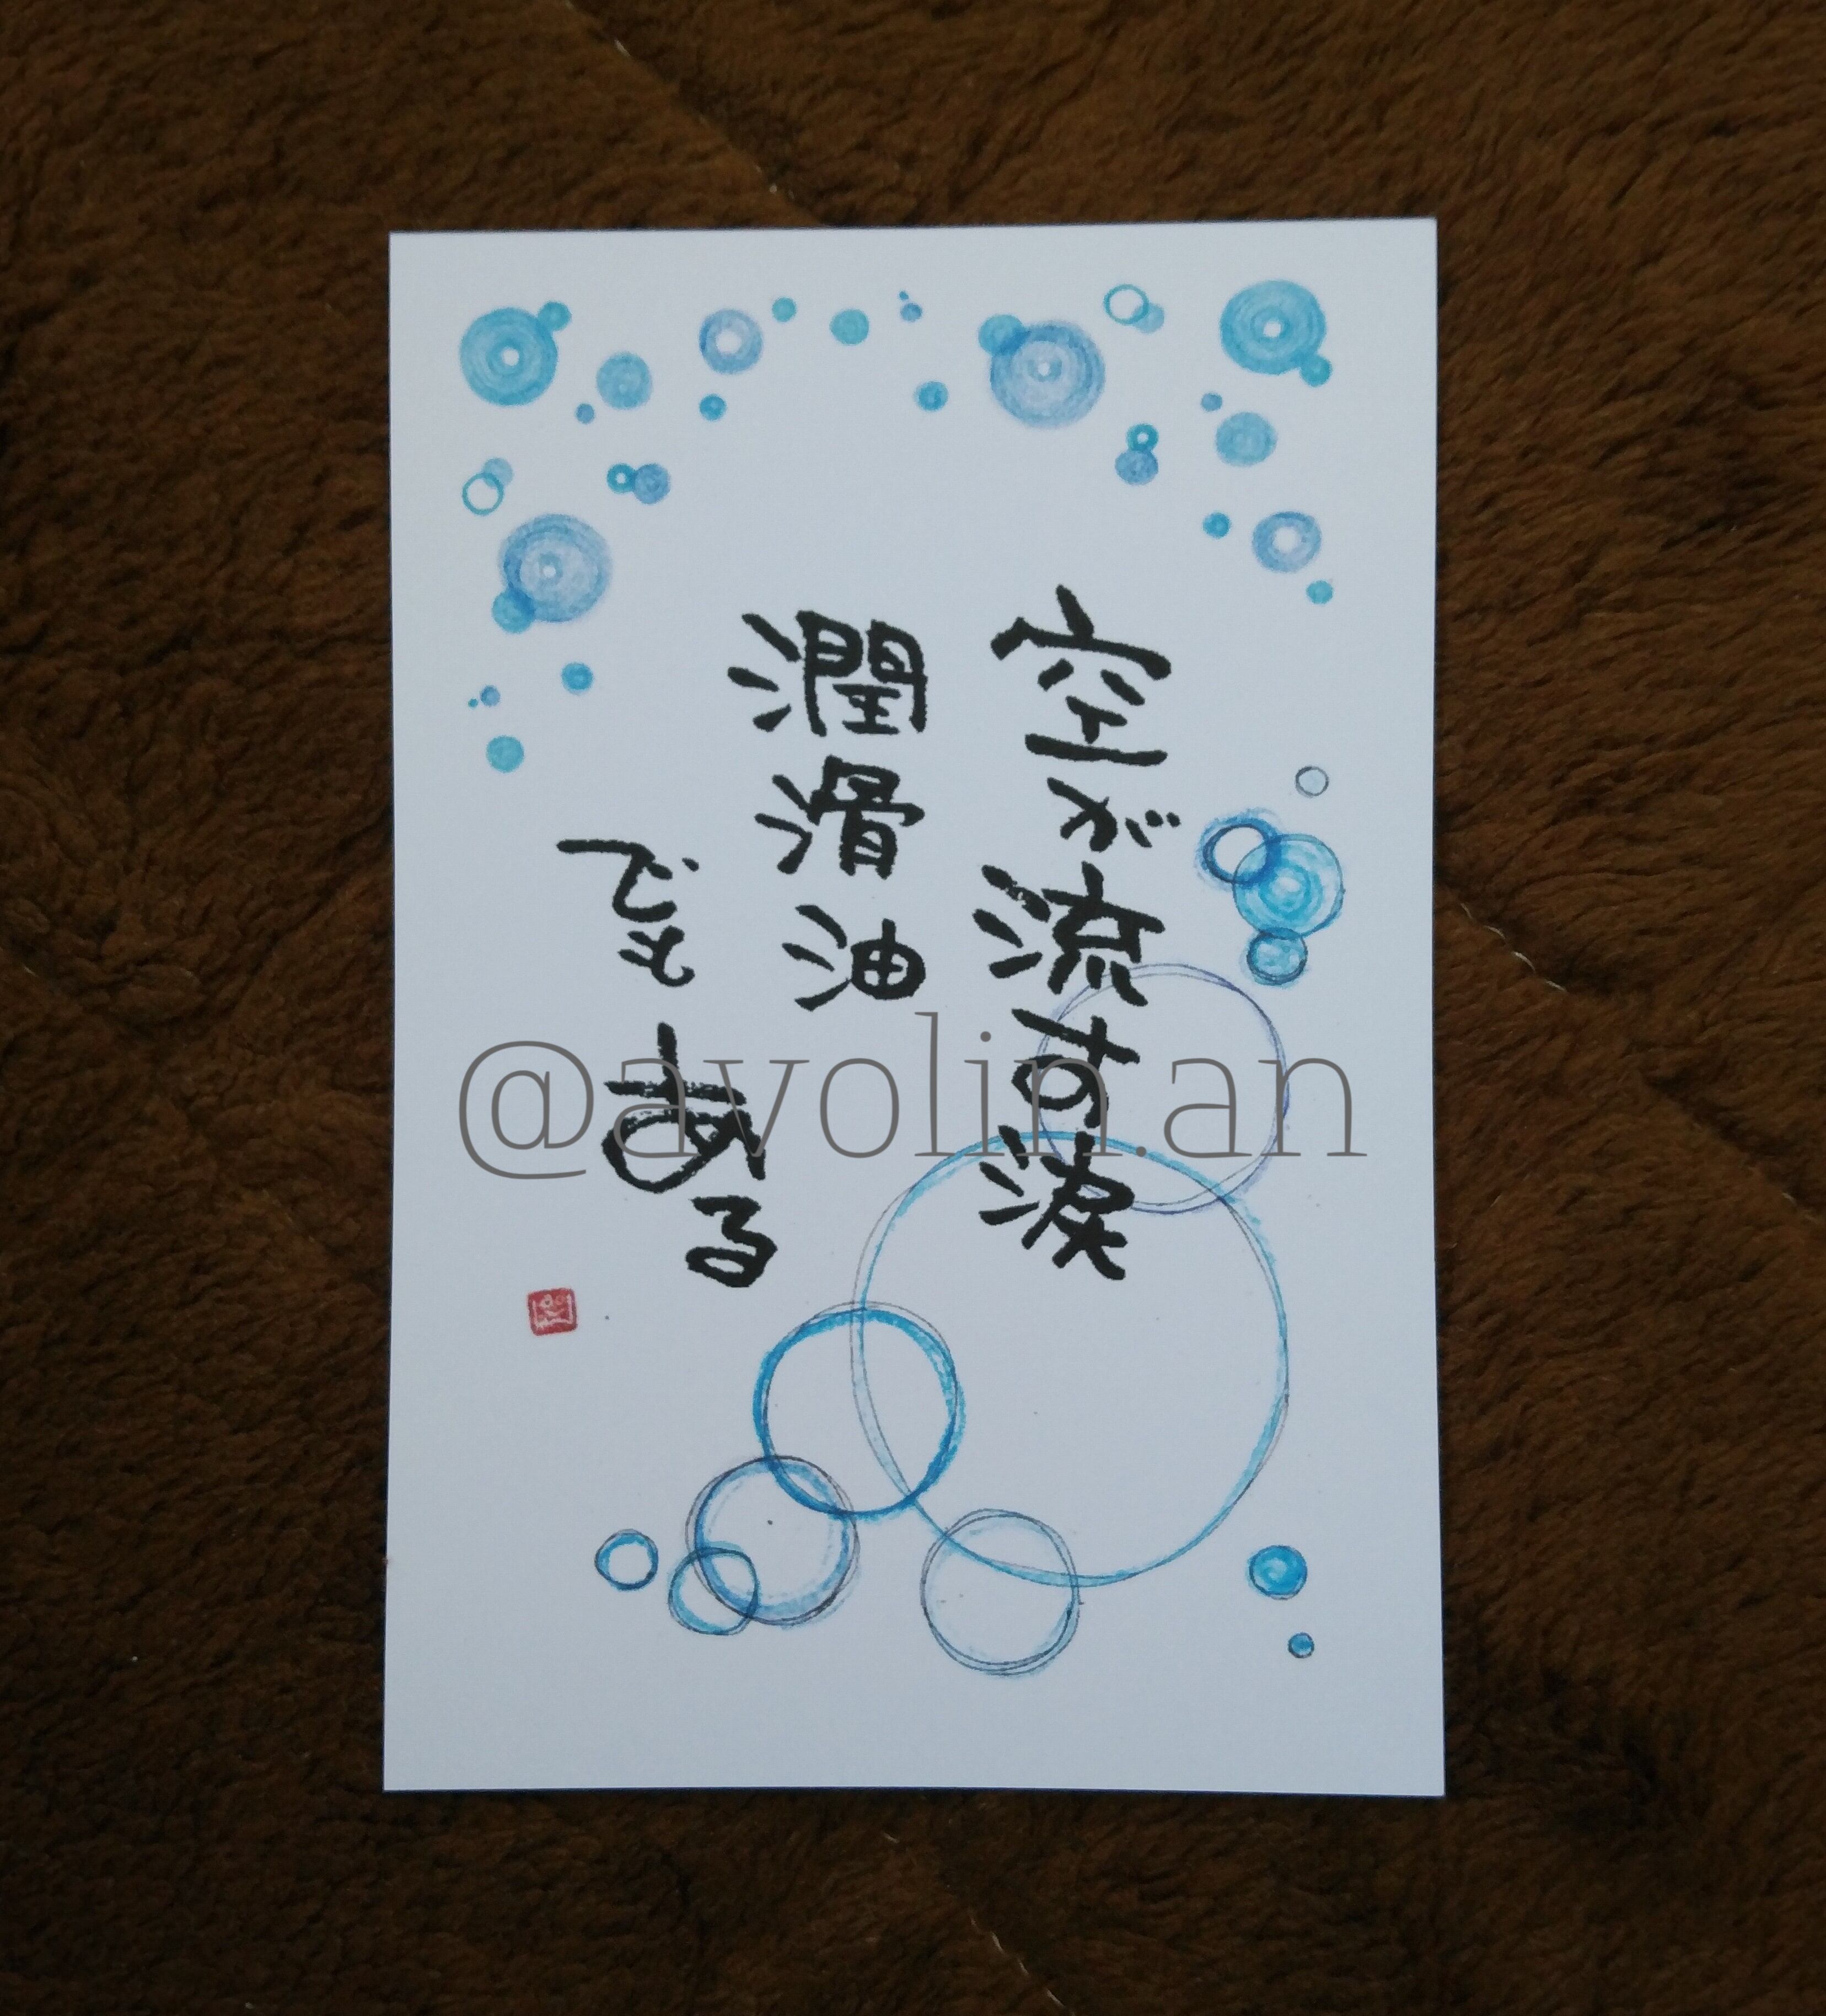 空が流す涙
潤滑油
でも ある
@avolin.an